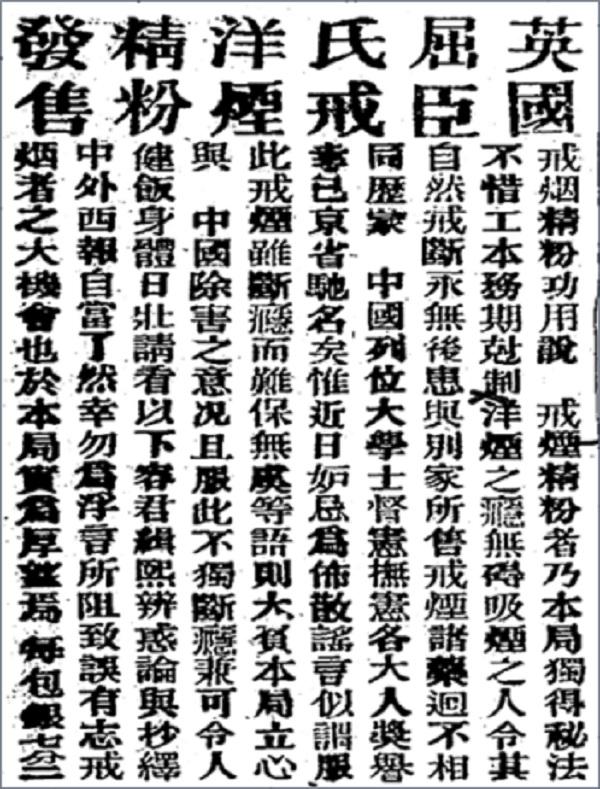 英國
屈臣
氏戒
洋煙
精粉
發售
戒烟精粉功用說　戒煙精粉者乃本局獨得秘法
不惜工本務期尅制洋煙之癮無碍吸煙之人令其
自然戒斷永無後患與別家所售戒煙諸藥迥不相
同歷蒙　中國列位大學士督憲撫憲各大人獎譽
奉已京省馳名矣惟近日妒忌爲佈散謠言似謂服
此戒煙雖斷癮而難保無虞等語則大負本局立心
與　中國除害之意况且服此不獨斷癮兼可令人
健飯身體日壯請看以下春君緝熙辨惑論與抄繹
中外西報自當了然幸勿爲浮言所阻致誤有志戒
烟者之大機會也於本局實爲厚益焉　每包銀七分二